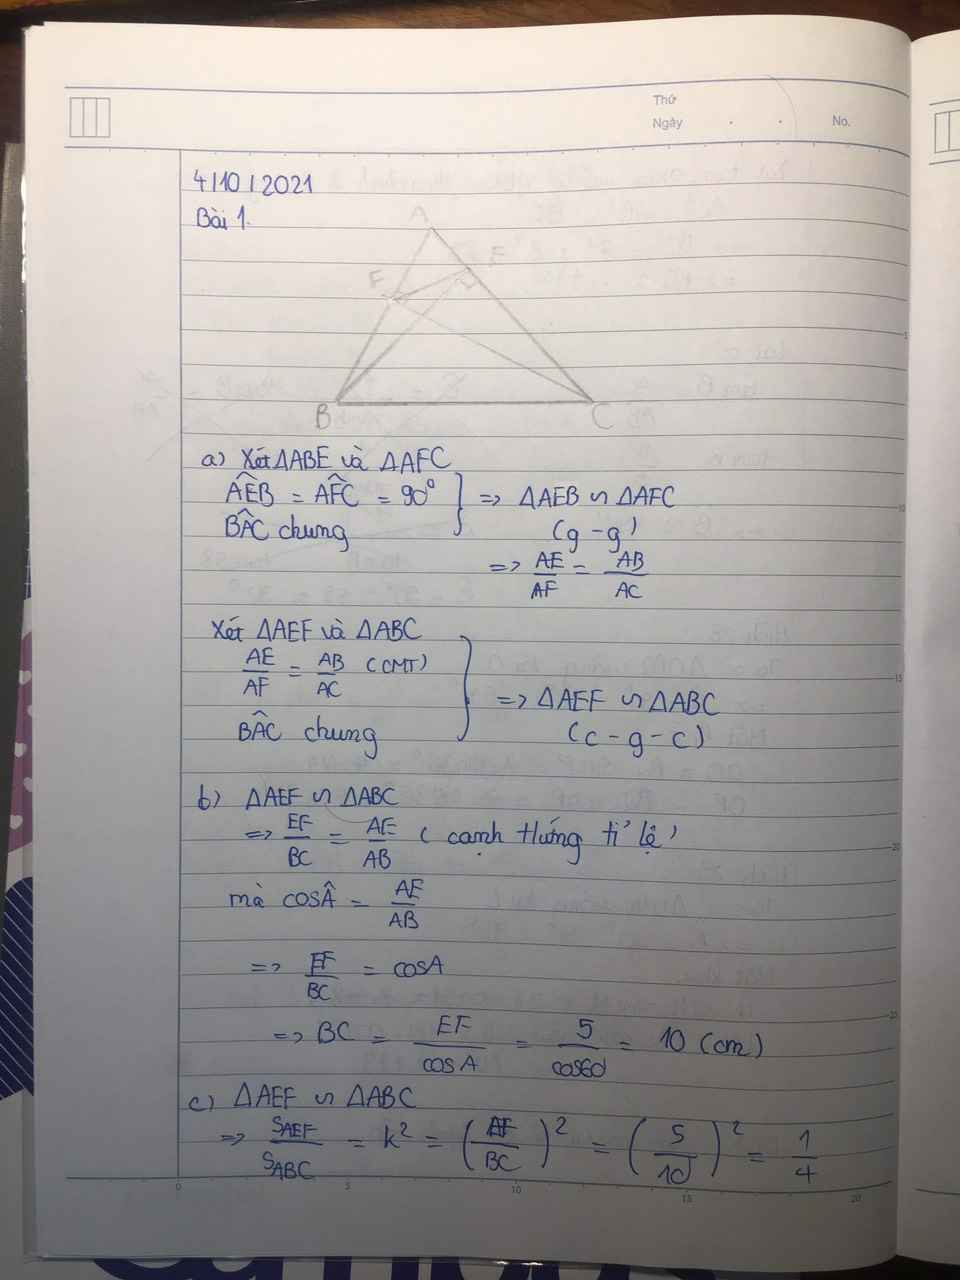 Thứ
Ngày . . No.
4/10/2021
Bài 1.
A
F E
B C
a) Xét ΔABE và ΔAFC
AÊB = AF̂C = 90° } => ΔAEB ∽ ΔAFC
BÂC chung (g-g)
=> AE/AF = AB/AC
Xét ΔAEF và ΔABC
AE/AF = AB/AC (CMT) } => ΔAEF ∽ ΔABC
BÂC chung (c-g-c)
b) ΔAEF ∽ ΔABC
=> EF/BC = AE/AB (cạnh tướng tỉ lệ)
mà cosÂ = AE/AB
=> EF/BC = cosA
=> BC = EF/cosA = 5/cos60 = 10 (cm)
c) ΔAEF ∽ ΔABC
=> S_AEF/S_ABC = k² = (/BC)² = (5/10)² = 1/4
0 5 10 15 20